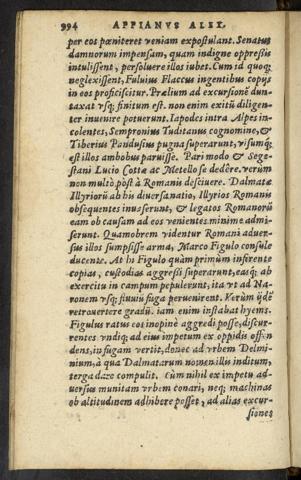 994 APPIANVS ALEX.
per eos pœniteret veniam expostulant. Senatus
damnorum impensam, quam indigne oppreßis
intulissent, persoluere illos iubet. Cum id quoq;
neglexissent, Fuluius Flaccus ingentibus copijs
in eos proficiscitur. Prælium ad excursionẽ dun-
taxat vsq; finitum est. non enim exitũ diligen-
ter inuenire potuerunt. Iapodes intra Alpes in-
colentes, Sempronius Tuditanus cognomine, &
Tiberius Pandusius pugna superarunt, visumq;
est illos ambobus paruisse. Pari modo & Sege-
stani Lucio Cottæ ac Metello se dedêre. verùm
non multò pòst à Romanis desciuere. Dalmatæ
Illyriorũ ab his diuersa natio, Illyrios Romanis
obsequentes inuaserunt, & legatos Romanorũ
eam ob causam ad eos venientes minime admi-
serunt. Quamobrem videntur Romani aduer-
sus illos sumpsisse arma, Marco Figulo consule
ducente. At hi Figulo quàm primùm infirente
copias, custodias aggreßi superarunt, easq; ab
exercitu in campum pepulerunt, ita vt ad Na-
ronem vsq; fluuiũ fuga peruenirent. Verùm ijdẽ
retrouertere gradũ. iam enim instabat hyems.
Figulus ratus eos inopinè aggredi posse, discur-
rentes vndiq; ad eius impetum ex oppidis offen
dens, in fugam vertit, donec ad vrbem Delmi-
nium, à qua Dalmatarum nomen illis inditum,
terga daze compulit. Cùm nihil ex impetu ad-
uersus munitam vrbem conari, neq; machinas
ob altitudinem adhibere posset, ad alias excur-
siones